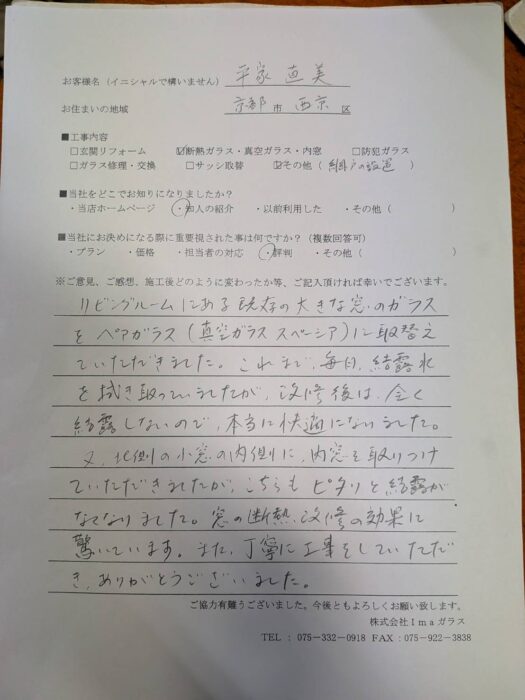 お客様名(イニシャルで構いません) 平家 直美
お住まいの地域 京都 市 西京 区
■工事内容
□玄関リフォーム ☑断熱ガラス・真空ガラス・内窓 □防犯ガラス
□ガラス修理・交換 □サッシ取替 ☑その他(網戸の設置)
■当社をどこでお知りになりましたか?
・当店ホームページ ・知人の紹介 ・以前利用した ・その他( )
■当社にお決めになる際に重要視された事は何ですか?(複数回答可)
・プラン ・価格 ・担当者の対応 ・評判 ・その他( )
※ご意見、ご感想、施工後どのように変わったか等、ご記入頂ければ幸いでございます。
リビングルームにある既存の大きな窓のガラス
を ペアガラス(真空ガラス スペーシア)に取替え
ていただきました。これまで、毎日、結露水
を拭き取っていましたが、改修後は、全く
結露しないので、本当に快適になりました。
又、北側の小窓の内側に、内窓を取りつけ
ていただきましたが、こちらも ピタリと結露が
なくなりました。窓の断熱改修の効果に
驚いています。また、丁寧に工事をしていただ
き、ありがとうございました。
ご協力有難うございました。今後ともよろしくお願い致します。
株式会社Imaガラス
TEL:075-332-0918 FAX:075-922-3838